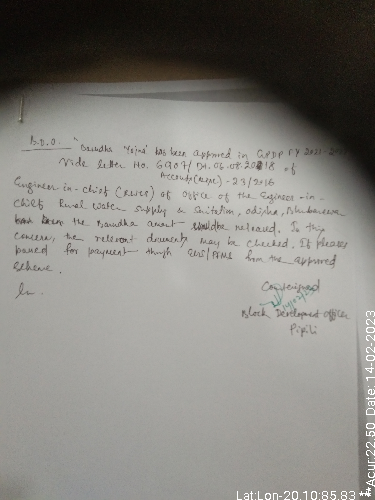 B.D.O. "Basudha Yojna" has been approved in GPDP FY 2021-
Vide Letter No. 6907/ Dt. 06.08.2018 of
Accounts (Repr) - 23/2016
Engineer in-chief (RWSS) of office of the Engineer-in-
chief Rural Water Supply & Sanitation, odisha, Bhubaneswar
the Basudha amount released. In this
concern, the relevant documents may be checked. If pleases
passed for payment through /PFMS from the approved
scheme.
Countersigned
Block Development Officer
Pipili
Lat:Lon-20.10:85.83 **Acur:22.50 Date: 14-02-2023